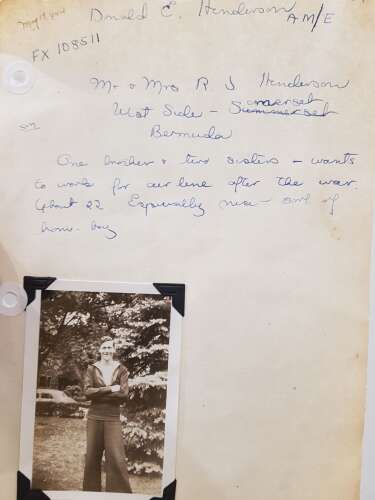 Donald E. Henderson A.M/E
FX 108511
Mr & Mrs R. J. Henderson
West Side - Summerset omerset
Bermuda
One brother & two sisters - wants
to work for air line after the war.
About 22 Especially nice - sort of
home-boy